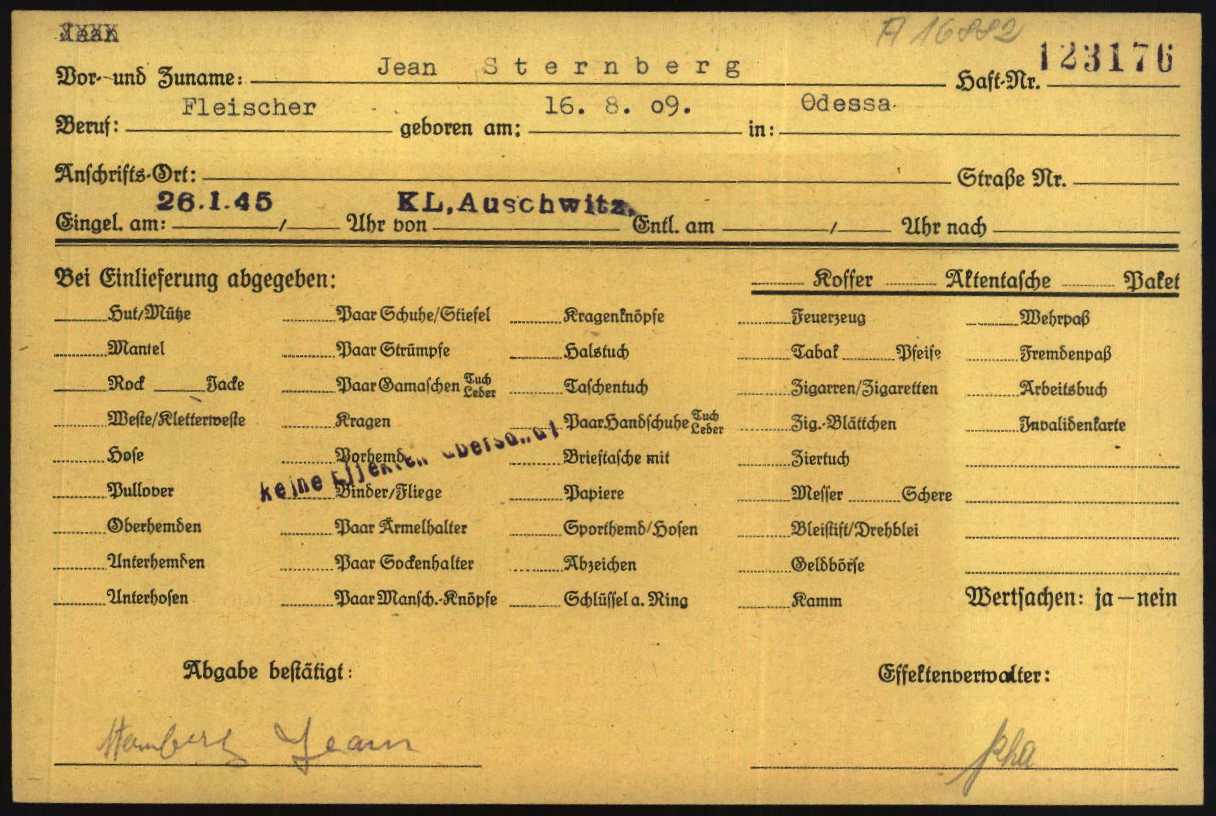 A 16882
123176
Vor- und Zuname: Jean Sternberg Haft-Nr.
Beruf: Fleischer geboren am: 16. 8. 09. in: Odessa
Anschrifts-Ort: Straße Nr.
Eingel. am: 26.1.45 / Uhr von KL,Auschwitz, Entl. am / Uhr nach
Bei Einlieferung abgegeben: Koffer Aktentasche Paket
Hut/Mütze Paar Schuhe/Stiefel Kragenknöpfe Feuerzeug Wehrpaß
Mantel Paar Strümpfe Halstuch Tabak Pfeife Fremdenpaß
Rock Jacke Paar Gamaschen Tuch Leder Taschentuch Zigarren/Zigaretten Arbeitsbuch
Weste/Kletterweste Kragen Paar Handschuhe Tuch Leder Zig.-Blättchen Invalidenkarte
Hose Vorhemd Brieftasche mit Ziertuch
keine Effekten übersandt
Pullover Binder/Fliege Papiere Messer Schere
Oberhemden Paar Ärmelhalter Sporthemd/Hosen Bleistift/Drehblei
Unterhemden Paar Sockenhalter Abzeichen Geldbörse
Unterhosen Paar Mansch.-Knöpfe Schlüssel a. Ring Kamm Wertsachen: ja — nein
Abgabe bestätigt: Effektenverwalter:
Jean